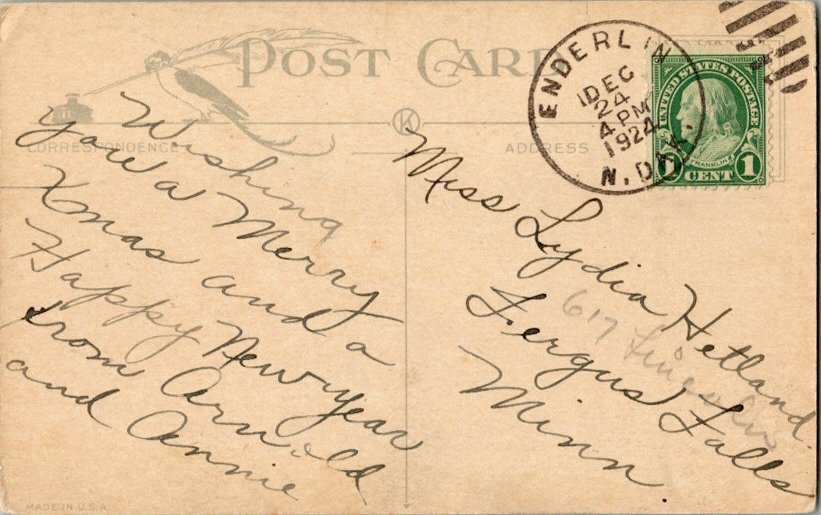 POST CARD
CORRESPONDENCE
ADDRESS
ENDERLIN
DEC
24
4 PM
1924
N. DAK.
UNITED STATES POSTAGE
FRANKLIN
1 CENT 1
K
Wishing
you a Merry
Xmas and a
Happy New year
from Arnold
and Annie
Miss Lydia Hetland
617 Lincoln
Fergus Falls
Minn.
MADE IN U.S.A.